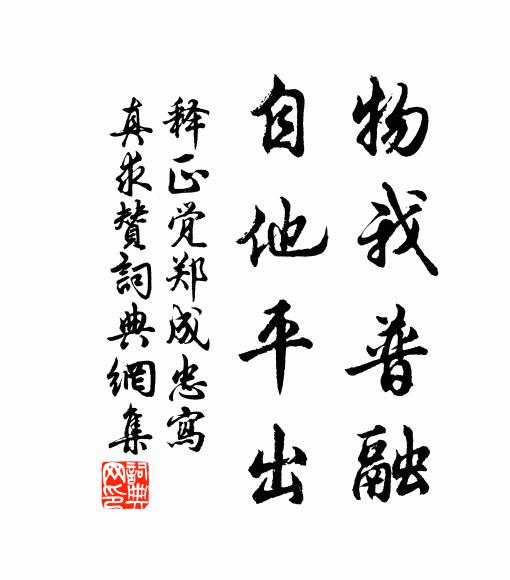 物我普融
自他平出
释正觉郑成忠寫
真求赞詞典網集
詞典
网印